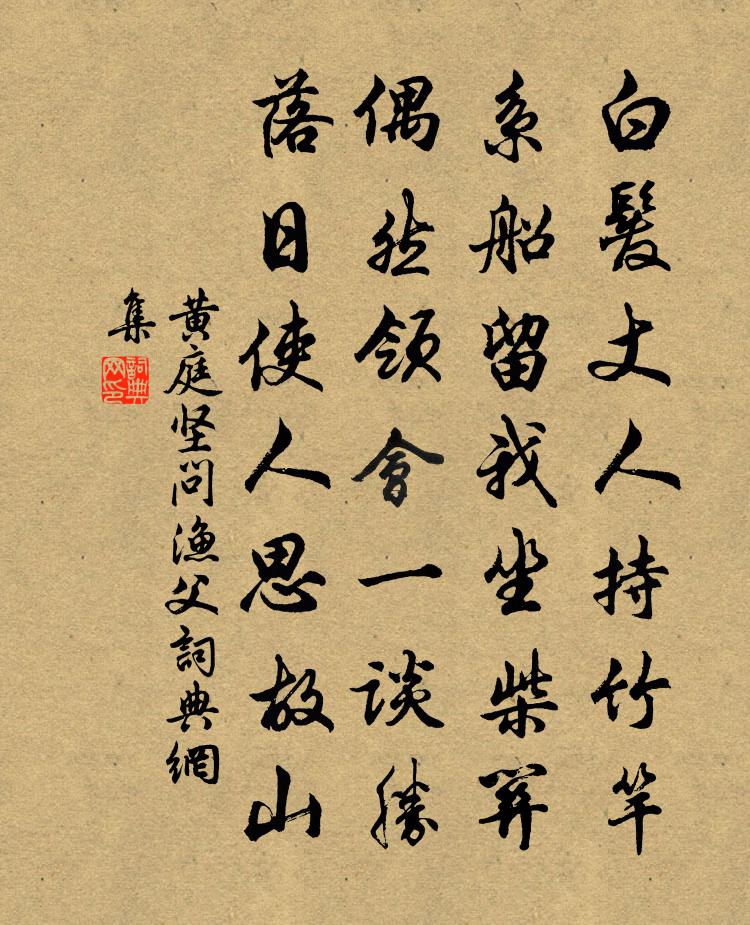 白髮丈人持竹竿
系船留我坐柴關
偶然領會一談勝
落日使人思故山
黃庭坚問漁父詞典網
集
詞典网印